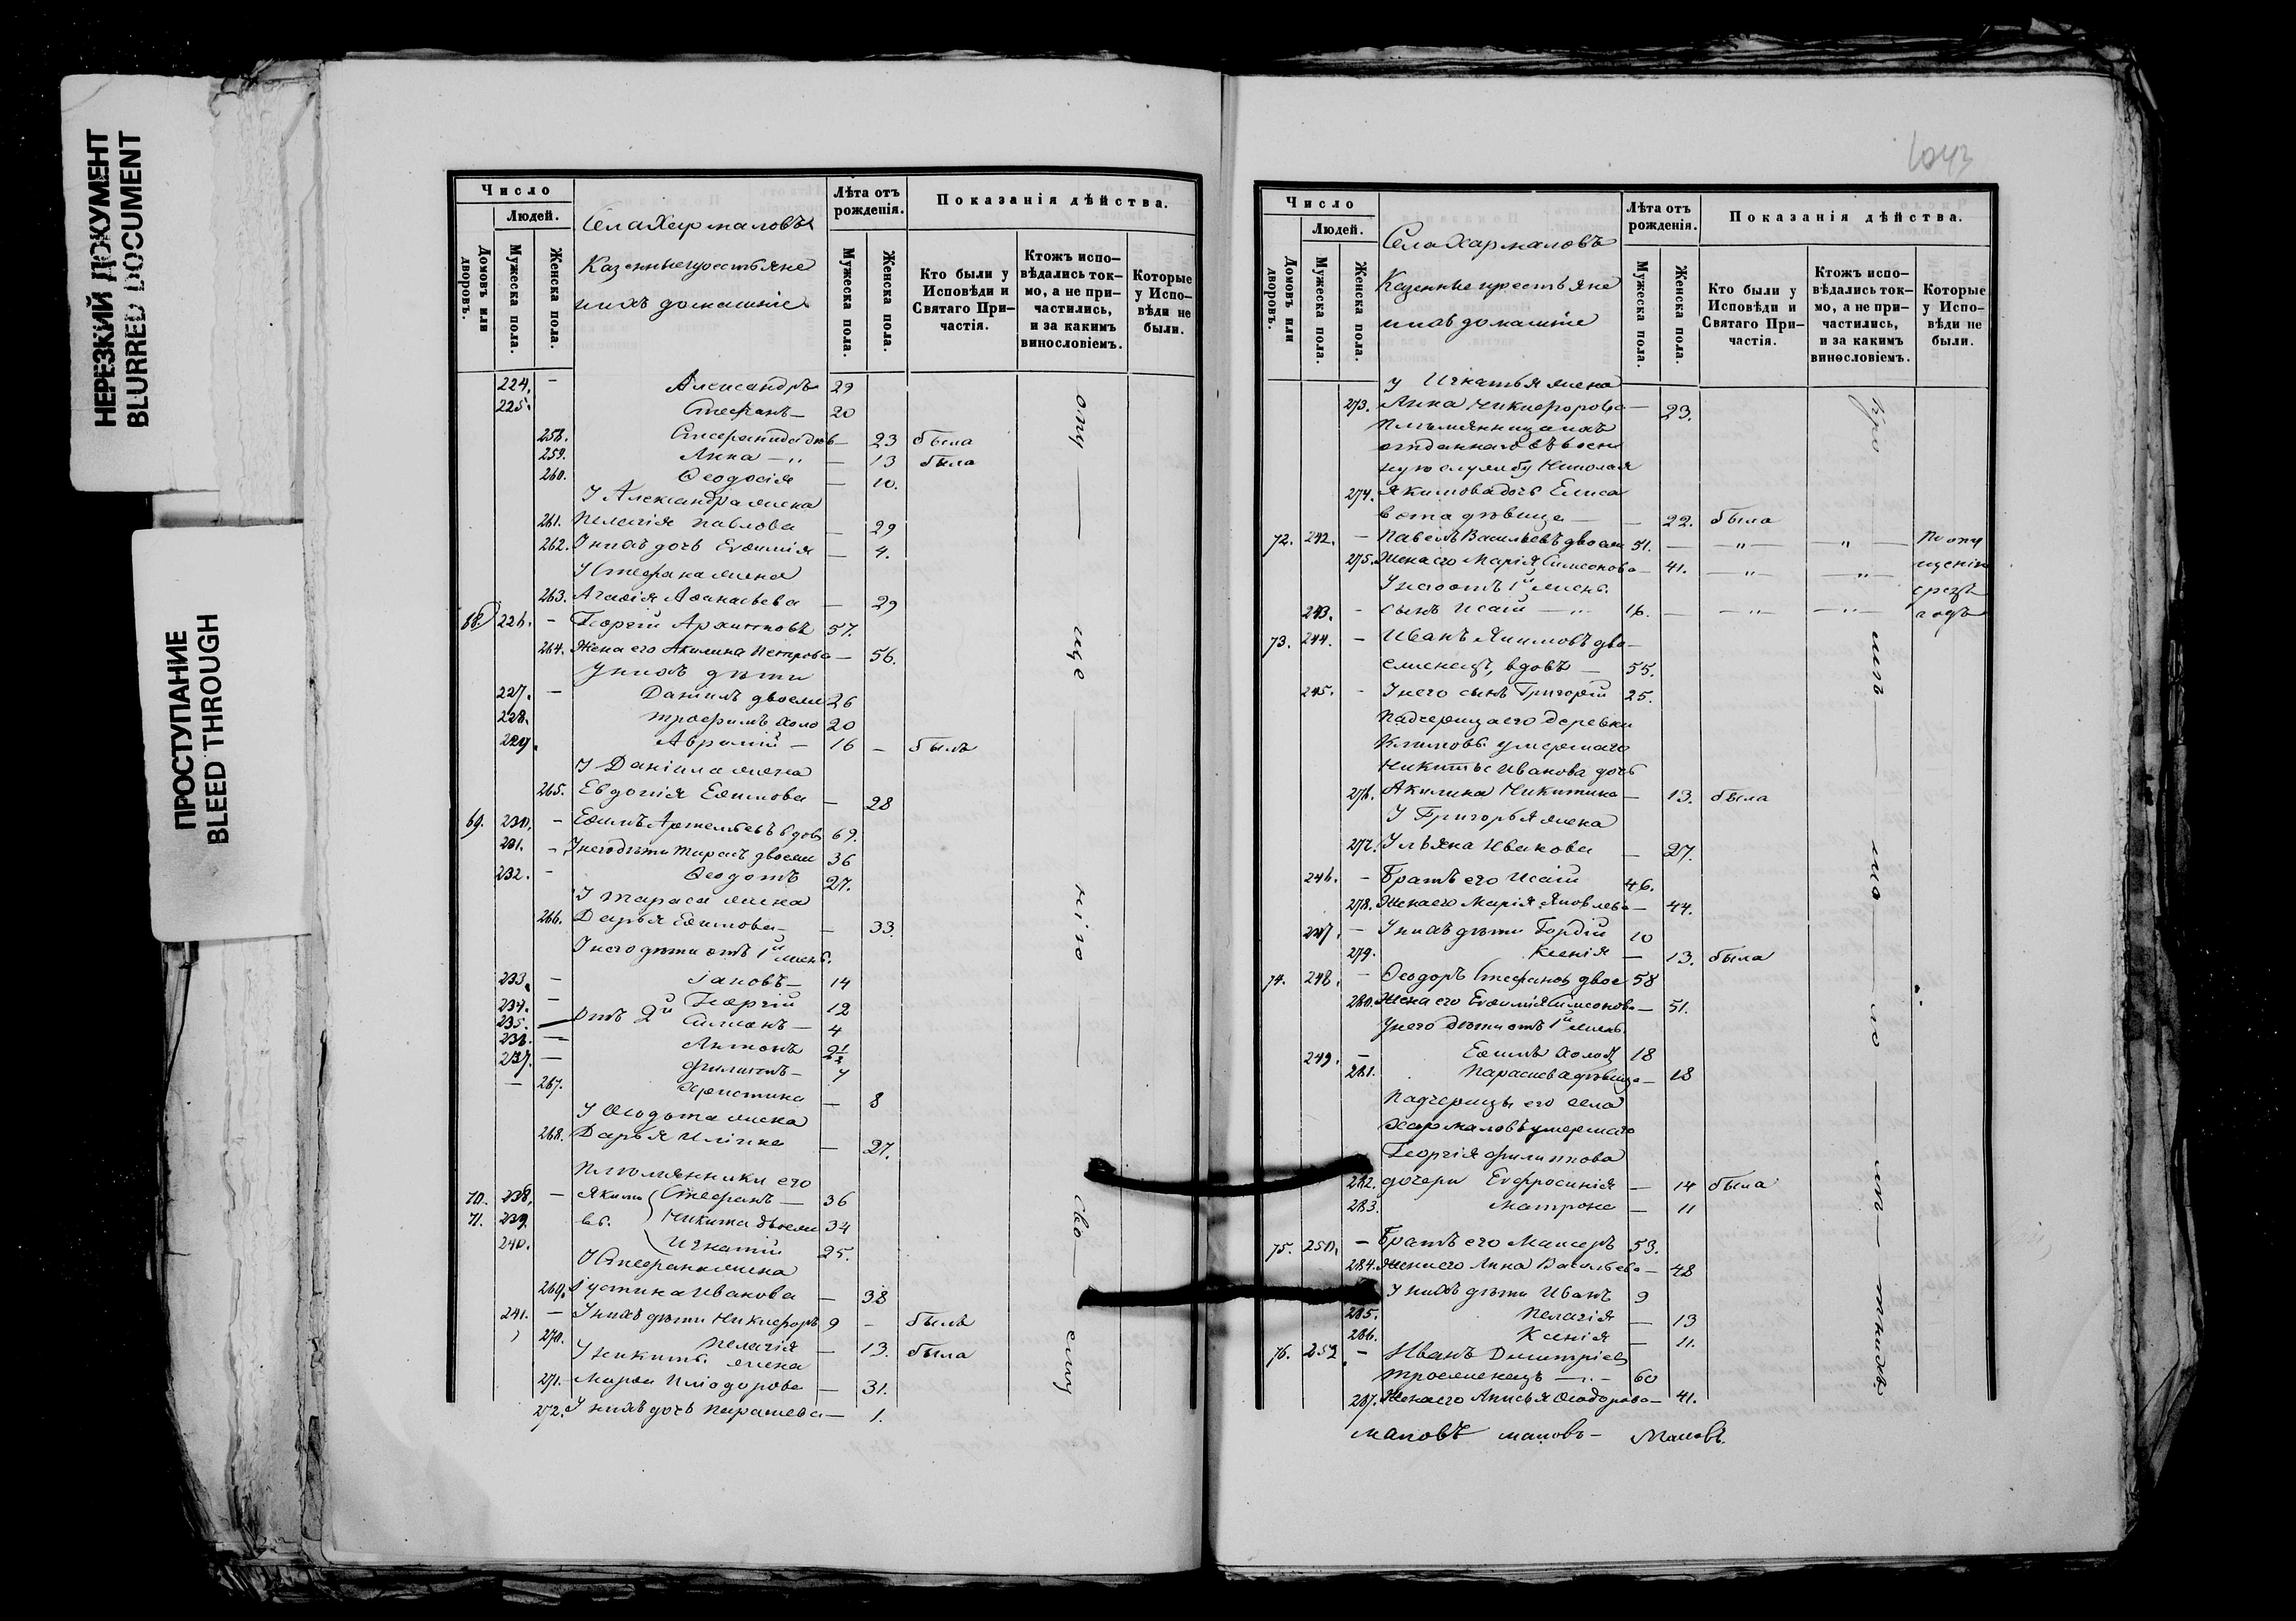 НЕРЕЗКИЙ ДОКУМЕНТ
BLURRED DOCUMENT
ПРОСТУПАНИЕ
BLEED THROUGH
Число
Людей.
Домовъ или дворовъ.
Мужеска пола.
Женска пола.
Села Хармаловъ
Казенные крестьяне
и ихъ домашніе
Лѣта отъ рожденія.
Мужеска пола.
Женска пола.
Показанія дѣйства.
Кто были у Исповѣди и Святаго Причастія.
Ктожъ исповѣдались токмо, а не причастились, и за какимъ винословіемъ.
Которые у Исповѣди не были.
224. – Александръ 29
225. Стефанъ – 20
258. – 23 была
259. Анна – „ – 13 была
260. Ѳеодосія – 10.
У Александра жена
261. Пелагія Павлова – 29
262. У нихъ дочь Евѳимія – 4.
У Стефана жена
263. Агаѳія Аѳанасьева – 29
68. 226. – Георгій Архиповъ 57.
264. Жена его Акилина Петрова – 56.
У нихъ дѣти
227. – Даніилъ двоеж 26
228. Трофимъ холо 20
229. Аврамій – 16 – былъ
У Даніила жена
265. Евдокія Еѳимова – 28
69. 230. – Еѳимъ Артемьевъ вдов 69.
231. – У него дѣти Тарасъ двоеж 36
232. – Ѳеодотъ 27.
У Тараса жена
266. Дарья Еѳимова – – 33.
У него дѣти отъ 1й жены.
233. – Іаковъ – 14
234. – Георгій 12
235. – Отъ 2й Симеонъ – 4
236. – Антонъ 2½
237. – Филиппъ – 7
– 267. Христина – 8
У Ѳеодота жена
268. Дарья Иліина – 27.
Племянники его
70. 238. – Якимо Стефанъ – 36
71. 239. вы. Никита двоеж 34
240. Игнатій 25.
У Стефана жена
269. Іустина Иванова – 38
241. – У нихъ дѣти Никифоръ 9 – былъ
270. Пелагія – 13. была
У Никиты жена
271. Марѳа Иліодорова – 31.
272. У нихъ дочь Параскева – 1.
опу – ще – нію – сво – ему
1043
Число
Людей.
Домовъ или дворовъ.
Мужеска пола.
Женска пола.
Села Хармаловъ
Казенные крестьяне
и ихъ домашніе
Лѣта отъ рожденія.
Мужеска пола.
Женска пола.
Показанія дѣйства.
Кто были у Исповѣди и Святаго Причастія.
Ктожъ исповѣдались токмо, а не причастились, и за какимъ винословіемъ.
Которые у Исповѣди не были.
у Игнатья жена
273. Анна Никифорова – 23.
Племянница ихъ
отданнаго въ воен
ную службу Николая
274. Якимова дочь Елиса
вета дѣвица – – 22. была
72. 242. – Павелъ Васильевъ двоеж 51. – „ – „ – По опу
275. Жена его Марія Симеонова – 41. – „ – „ – щенію
У него отъ 1й жены.
243. – сынъ Исаій – „ 16. – – „ – – „ –
73. 244. – Иванъ Якимовъ дво–
еженецъ, вдовъ – 55.
245. – У него сынъ Григорій 25.
Падчерица его деревни
умершаго
Никиты Иванова дочь
276. Акилина Никитина – 13. была
У Григорья жена
277. Ульяна Иванова – 27.
246. – Братъ его Исаій 46.
278. Жена его Марія Яковлева – 44.
247. – У нихъ дѣти Гордій 10
279. Ксенія – 13. была
74. 248. – Ѳеодоръ Стефановъ двое 58
280. Жена его Евѳимія Симеонова – 51.
У него дѣти отъ 1й жены.
249. – Еѳимъ холос 18
281. Параскева дѣвица – 18
Падчерицы его села
Хармаловъ умершаго
Георгія Филиппова
282. дочери Евфросинія – 14 была
283. Матрона – 11
75. 250. – Братъ его 53.
284. Жена его Анна Васильева – 48
У нихъ дѣти Иванъ 9
285. Пелагія – 13
286. Ксенія – 11.
76. 252. – Иванъ Димитріев
троеженецъ – „ – 60
287. Жена его Анисья Ѳеодорова – 41.